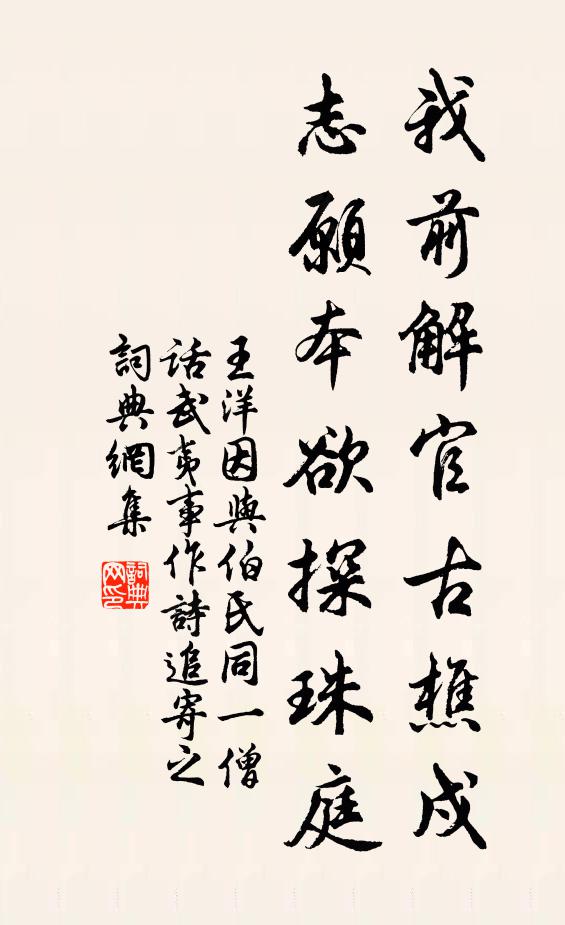 我前解官古樵戍
志願本欲探珠庭
王洋因與伯氏同一僧
話武夷事作詩追寄之
詞典網集
詞典
网印